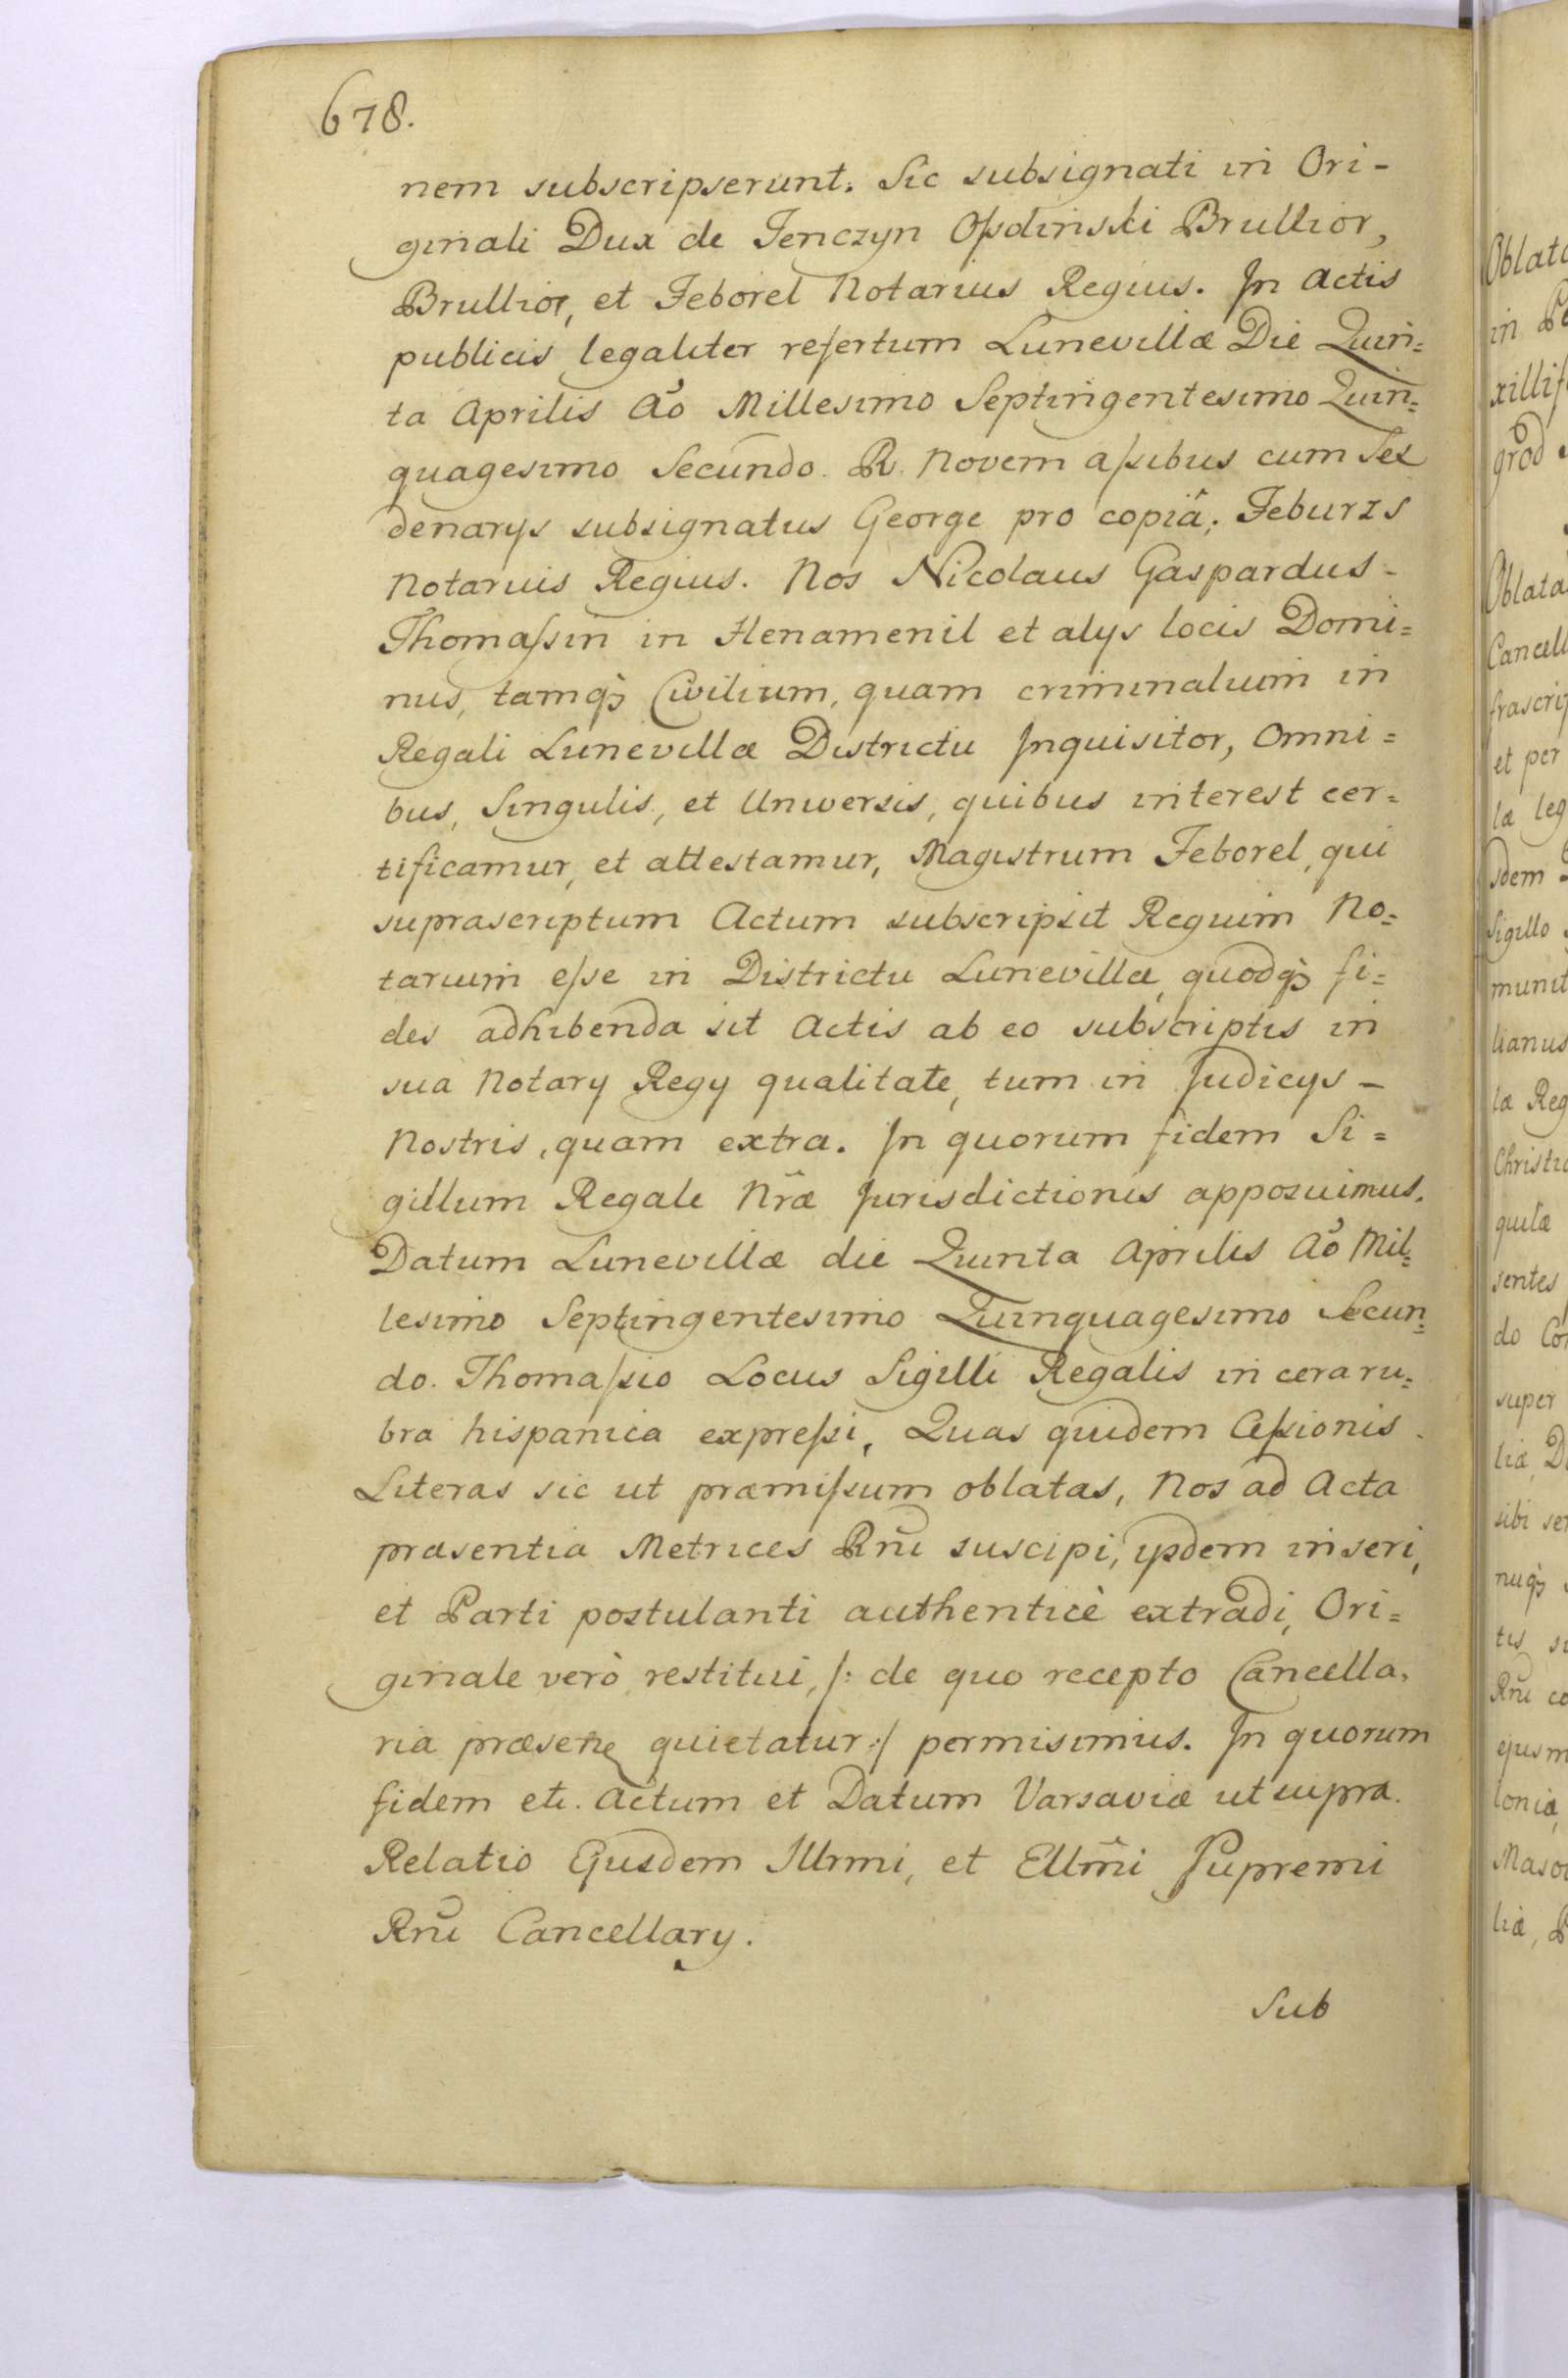 678.
nem subscripserunt. Sic subsignati in Ori-
ginali Dux de Tenczyn Ossolinski Brullior,
Brullior, et Feborel Notarius Regius. In Actis
publicis legaliter refertum Lunevillæ Die Quin=
ta Aprilis Aõ Millesimo Septingentesimo Quin=
quagesimo Secundo. R. Novem assibus cum Sex
denarys subsignatus George pro copiâ; Feburzs
Notarius Regius. Nos Nicolaus Gaspardus-
Thomassin in Henamenil et alys locis Domi=
nus, tamq₃ Civilium, quam criminalium in
Regali Lunevillæ Districtu Inquisitor, Omni=
bus, Singulis, et Universis, quibus interest cer=
tificamur, et attestamur, Magistrum Feborel, qui
suprascriptum Actum subscripsit Regium No=
tarium esse in Districtu Lunevillæ, quodq₃ fi=
des adhibenda sit Actis ab eo subscriptis in
sua Notary Regy qualitate, tum in Judicys-
Nostris, quam extra. In quorum fidem Si=
gillum Regale Nr̃æ Jurisdictionis apposuimus.
Datum Lunevillæ die Quinta Aprilis Aõ Mil=
lesimo Septingentesimo Quinquagesimo Secun=
do. Thomassio Locus Sigilli Regalis in cera ru=
bra hispanica expressi, Quas quidem Cessionis
Literas sic ut præmissum oblatas, Nos ad Acta
præsentia Metrices Rñi suscipi, ysdem inseri,
et Parti postulanti authenticè extradi, Ori=
ginale verò restitui, /: de quo recepto Cancella=
ria præsens quietatur :/ permisimus. In quorum
fidem etc. Actum et Datum Varsaviæ ut supra.
Relatio Ejusdem Illrmi, et Ellm̃i Supremi
Rñi Cancellary.
Sub
Oblata
in
grod
Oblata
Cancell
et per
la leg
sdem
Sigillo
munit
lianus
læ Reg
Christia
sentes
super
sibi
nuq₃
Rñi
loniæ,
liæ,